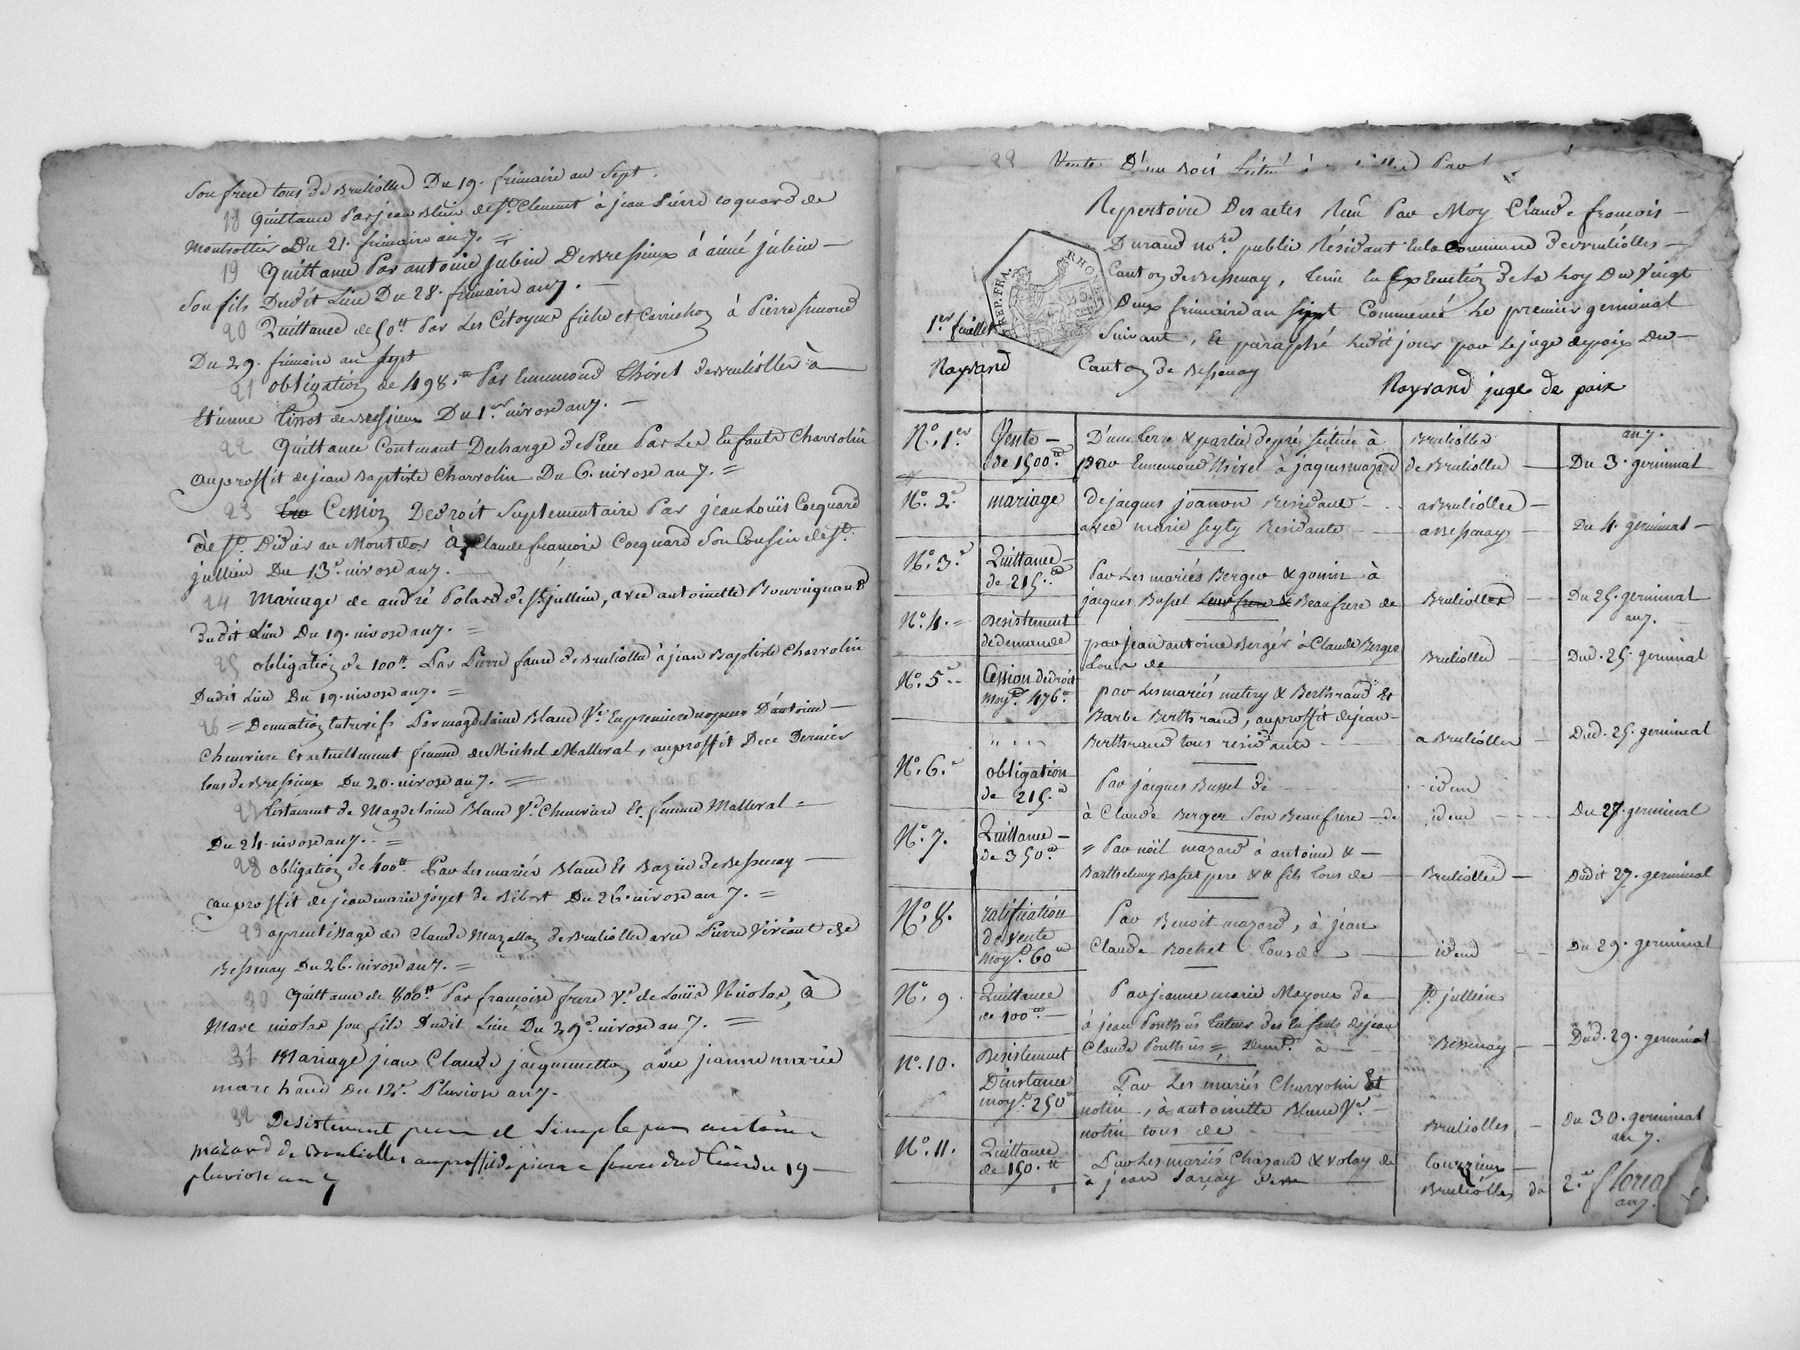 Son frere tous de Brulliolles Du 19. frimaire an Sept.
18 Quittance Par jean Blein de St. Clement à jean Pierre coquard de
Montrottier Du 21. frimaire an 7. =
19 Quittance Par antoine jubin De Bressieux à aimé jubin —
Son fils Dudit Lieu Du 28. frimaire an 7. —
20 Quittance de 50tt Par Les Citoyens et à Pierre Simond
Du 29. frimaire an Sept
21 obligation de 498.tt Par Ennemond Thivel de Brulliolles à
Etienne de Bressieux Du 1er nivose an 7. —
22 Quittance Contenant Decharge de Pieces Par Les Enfants Charvolin
au proffit de jean Baptiste Charvolin Du 6. nivose an 7. =
23 Cession De droit Suplementaire Par jean Louis Coquard
de St. Didier au Montdor à Claude françois Coquard Son Cousin de St.
jullien Du 13e. nivose an 7. —
24 Mariage de andré Polard de St jullien, avec antoinette
dudit Lieu Du 19. nivose an 7. =
25 obligation de 100tt Par Pierre faure de Brulliolles à jean Baptiste Charvolin
Dudit Lieu Du 19. nivose an 7. =
26 = Donnation Entrevifs Par magdelaine Blanc Ve. En premieres nopces D'antoine —
Cheuvriere Et actuellement femme de Michel Malleval, au proffit De ce Dernier
tous de Bressieux Du 20. nivose an 7. =
27 testament de Magdelaine Blanc Ve. Cheuvriere Et femme Malleval =
Du 24. nivose an 7. =
28 obligation de 400tt Par Les mariés Blanc Et Bazin de Bessenay —
au proffit de jean marie joyet de Bibost Du 26. nivose an 7. =
29 aprentissage de Claude Mazallon de Brulliolles avec Pierre Viriaut de
Bessenay Du 26. nivose an 7. =
30 Quittance de 800tt Par françoise frere Ve. de Louis Nicolas, à
Marc nicolas son fils Dudit Lieu, Du 29e. nivose an 7. =
31 Mariage jean Claude jacquemetton avec jeanne marie
marchand Du 12e. Pluviose an 7.
32 Desistement pur et Simple par antoine
mazard de Brulliolles au proffit de pierre faure dud. Lieu du 19 —
pluviose an 7
22 Vente D'un Bois Situé à Par
Repertoire Des actes Reçu Par Moy Claude françois —
Durand nore. public Résidant En la Commune de Brulliolles —
Canton de Bessenay, tenu En Exécution de la Loy Du Vingt
Deux frimaire an Sept Commencé Le premier germinal
Suivant, Et paraphé Ledit jour par Le juge de paix Du —
Canton de Bessenay
REP. FRA. RHONE
1er. fuillet
Rayrand
Rayrand juge de paix
No. 1er Vente — D'une terre & partie de pré Située à Brulliolles an 7.
de 1500.tt par Ennemond Thivel à jaques mazard de Brulliolles — Du 3. germinal
No. 2e mariage De jacques joanon Residant - a Brulliolles —
avec marie Seyty Residante a Bessenay — Du 4. germinal —
No. 3.e Quittance de 215.tt Par Les mariés Berger & gonin à
jacques Basset Leur frere & Beaufrere de Brulliolles — Du 25. germinal an 7.
No. 4. = Desistement de demande par jean antoine Berger à Claude Berger
tous de Brulliolles Dud. 25. germinal
No. 5e - Cession de droit moyt. 476.tt par Les mariés & Berthrand Et
Barbe Berthrand, au proffit de jean —
Berthrand tous résidants — a Brulliolles — Dud. 25. germinal
No. 6.e obligation de 215.tt Par jacques Basset de idem
à Claude Berger Son Beaufrere — de idem — Du 27. germinal
No. 7. Quittance — de 350.tt = Par noël mazard à antoine & —
Barthelemy Basset pere & fils tous de — Brulliolles — Dudit 27. germinal
No. 8. ratification de Vente moyt. 60tt Par Benoit mazard, à jean
Claude Rochet tous de — idem — Du 29. germinal
No. 9. Quittance de 100tt — Par jeanne marie Mayoux de — St. jullien
à jean Ponthus tuteur des Enfants de jean
Claude Ponthus =, Demt. à — Bessenay — Dud. 29. germinal
No. 10. Desistement D'instance moyt. 250tt Par Les mariés Charvolin Et
notin, à antoinette Blanc Ve. —
notin tous de Brulliolles — Du 30. germinal an 7.
No. 11. Quittance de 150.tt Par Les mariés Chazaud & Volay de Courzieux —
à jean Parcay de Brulliolles du 2.e floreal an 7.